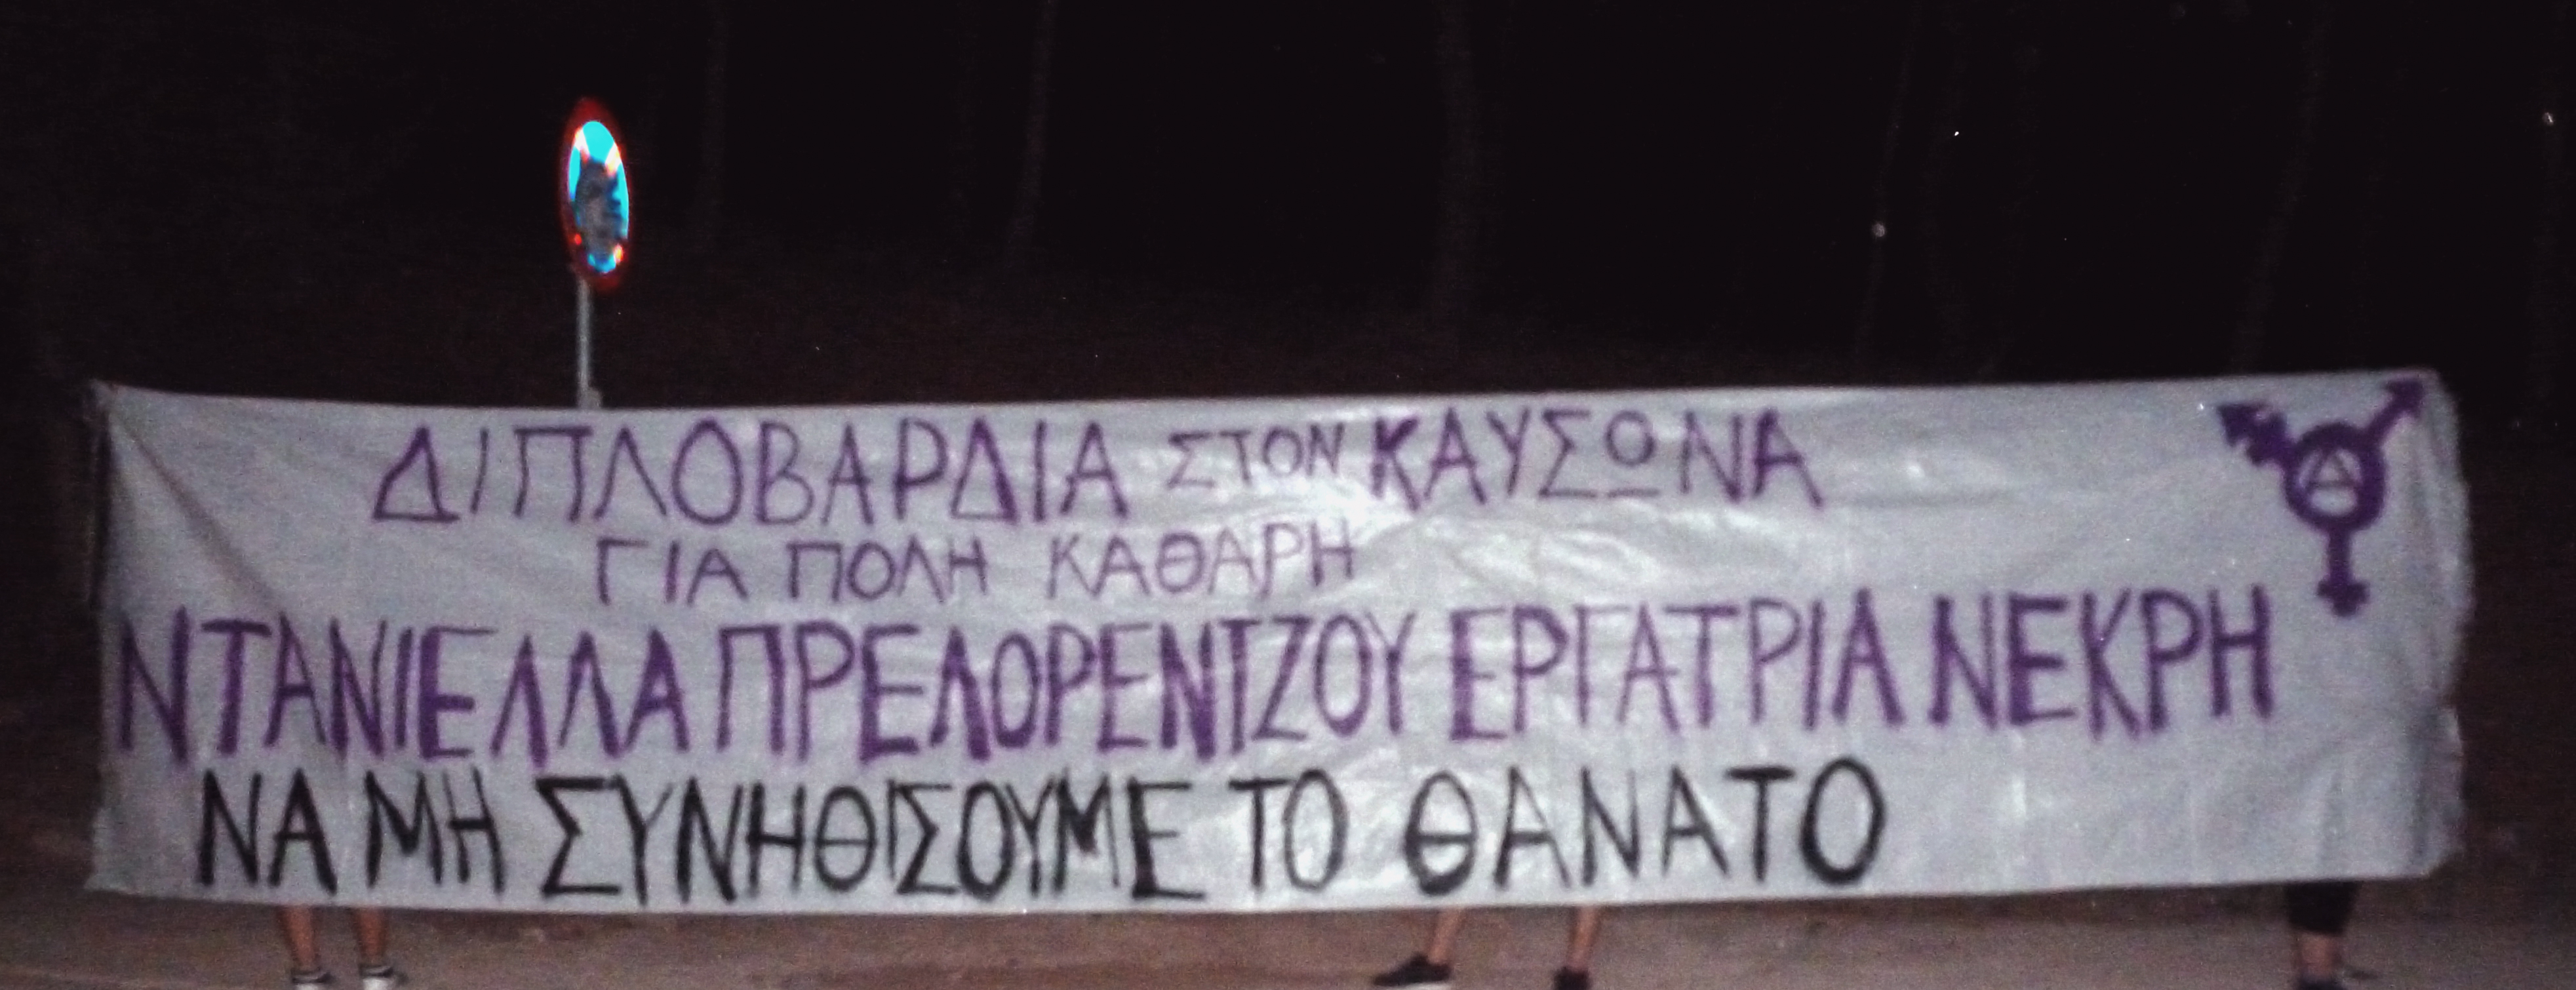 ΔΙΠΛΟΒΑΡΔΙΑ ΣΤΟΝ ΚΑΥΣΩΝΑ
ΓΙΑ ΠΟΛΗ ΚΑΘΑΡΗ
ΝΤΑΝΙΕΛΛΑ ΠΡΕΛΟΡΕΝΤΖΟΥ ΕΡΓΑΤΡΙΑ ΝΕΚΡΗ
ΝΑ ΜΗ ΣΥΝΗΘΙΣΟΥΜΕ ΤΟ ΘΑΝΑΤΟ